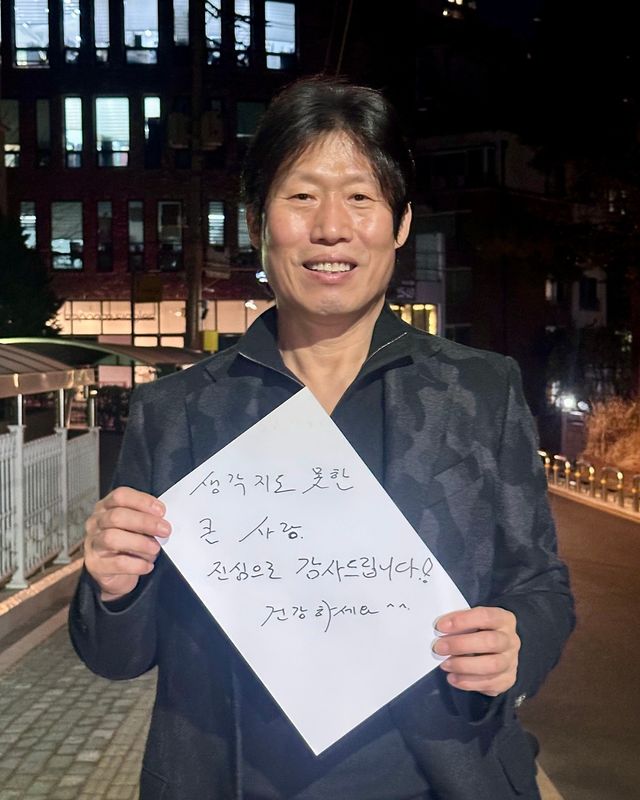 생각지도 못한
큰 사랑.
진심으로 감사드립니다!
건강하세요 ^^.